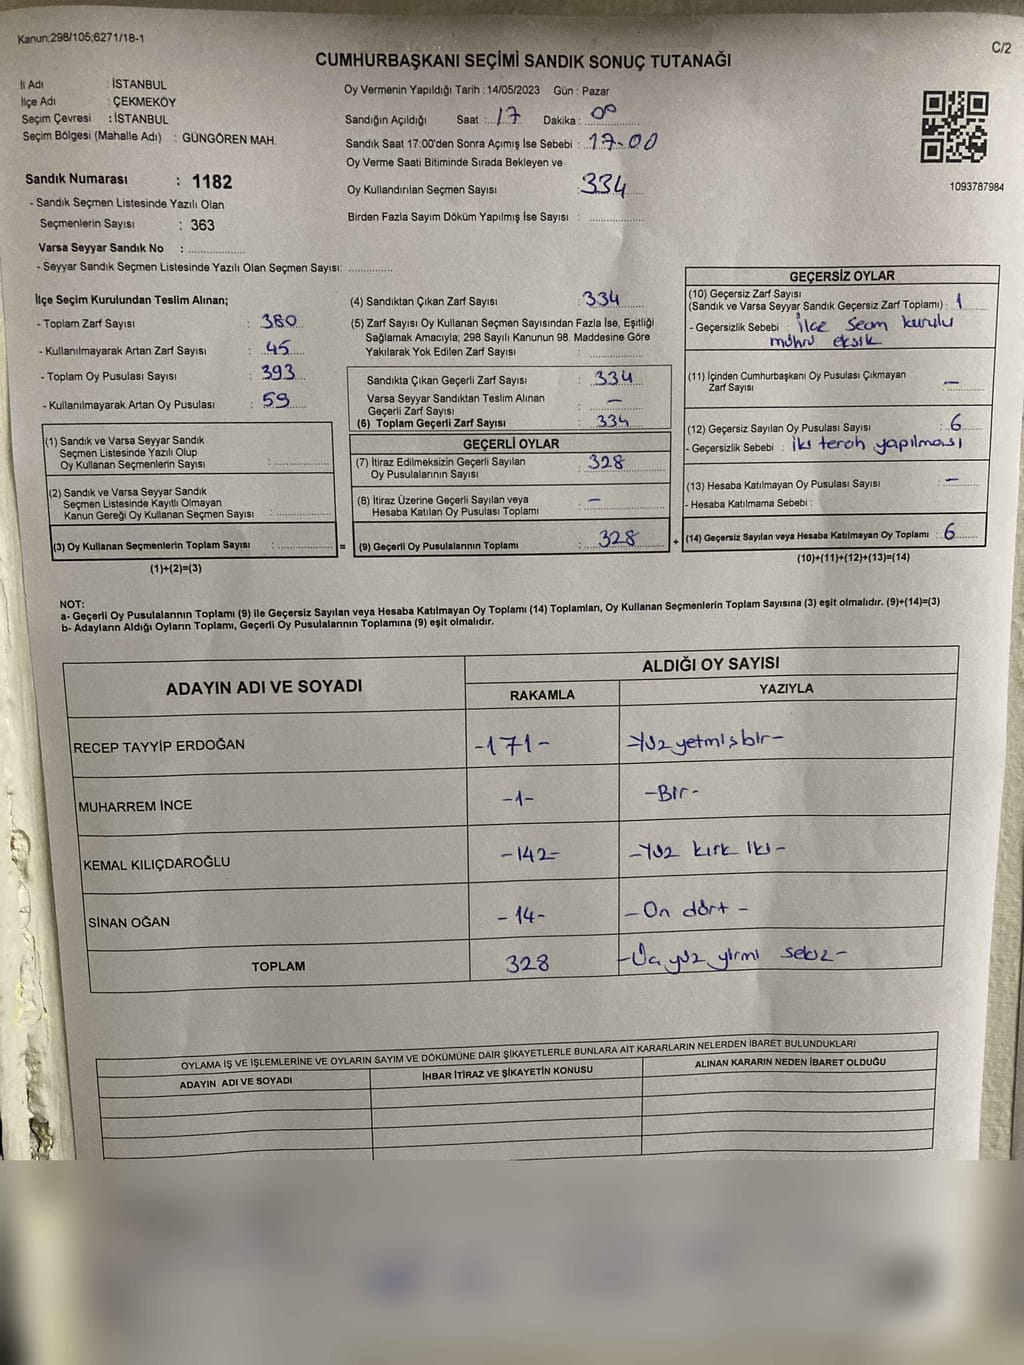 Kanun:298/105,6271/18-1
C/2
CUMHURBAŞKANI SEÇİMİ SANDIK SONUÇ TUTANAĞI
İl Adı : İSTANBUL
İlçe Adı : ÇEKMEKÖY
Seçim Çevresi : İSTANBUL
Seçim Bölgesi (Mahalle Adı) : GÜNGÖREN MAH.
Sandık Numarası : 1182
- Sandık Seçmen Listesinde Yazılı Olan
Seçmenlerin Sayısı : 363
Varsa Seyyar Sandık No : ..............
- Seyyar Sandık Seçmen Listesinde Yazılı Olan Seçmen Sayısı: ..............
Oy Vermenin Yapıldığı Tarih : 14/05/2023 Gün : Pazar
Sandığın Açıldığı Saat : 17 Dakika : 00
Sandık Saat 17:00'den Sonra Açımış İse Sebebi : 17-00
Oy Verme Saati Bitiminde Sırada Bekleyen ve
Oy Kullandırılan Seçmen Sayısı : 334
Birden Fazla Sayım Döküm Yapılmış İse Sayısı : ..............
1093787984
İlçe Seçim Kurulundan Teslim Alınan;
- Toplam Zarf Sayısı : 380
- Kullanılmayarak Artan Zarf Sayısı : 45
- Toplam Oy Pusulası Sayısı : 393
- Kullanılmayarak Artan Oy Pusulası : 59
(1) Sandık ve Varsa Seyyar Sandık
Seçmen Listesinde Yazılı Olup
Oy Kullanan Seçmenlerin Sayısı : ..............
(2) Sandık ve Varsa Seyyar Sandık
Seçmen Listesinde Kayıtlı Olmayan
Kanun Gereği Oy Kullanan Seçmen Sayısı : ..............
(3) Oy Kullanan Seçmenlerin Toplam Sayısı : ..............
(1)+(2)=(3)
=
(4) Sandıktan Çıkan Zarf Sayısı : 334
(5) Zarf Sayısı Oy Kullanan Seçmen Sayısından Fazla İse, Eşitliği
Sağlamak Amacıyla; 298 Sayılı Kanunun 98. Maddesine Göre
Yakılarak Yok Edilen Zarf Sayısı : ..............
Sandıkta Çıkan Geçerli Zarf Sayısı : 334
Varsa Seyyar Sandıktan Teslim Alınan
Geçerli Zarf Sayısı : -
(6) Toplam Geçerli Zarf Sayısı : 334
GEÇERLİ OYLAR
(7) İtiraz Edilmeksizin Geçerli Sayılan
Oy Pusulalarının Sayısı : 328
(8) İtiraz Üzerine Geçerli Sayılan veya
Hesaba Katılan Oy Pusulası Toplamı : -
(9) Geçerli Oy Pusulalarının Toplamı : 328
+
GEÇERSİZ OYLAR
(10) Geçersiz Zarf Sayısı
(Sandık ve Varsa Seyyar Sandık Geçersiz Zarf Toplamı) : 1
- Geçersizlik Sebebi : İlçe Seçm kurulu
mührü eksik
(11) İçinden Cumhurbaşkanı Oy Pusulası Çıkmayan
Zarf Sayısı : -
(12) Geçersiz Sayılan Oy Pusulası Sayısı : 6
- Geçersizlik Sebebi : iki tercih yapılması
(13) Hesaba Katılmayan Oy Pusulası Sayısı : -
- Hesaba Katılmama Sebebi :
(14) Geçersiz Sayılan veya Hesaba Katılmayan Oy Toplamı : 6
(10)+(11)+(12)+(13)=(14)
NOT:
a- Geçerli Oy Pusulalarının Toplamı (9) ile Geçersiz Sayılan veya Hesaba Katılmayan Oy Toplamı (14) Toplamları, Oy Kullanan Seçmenlerin Toplam Sayısına (3) eşit olmalıdır. (9)+(14)=(3)
b- Adayların Aldığı Oyların Toplamı, Geçerli Oy Pusulalarının Toplamına (9) eşit olmalıdır.
ADAYIN ADI VE SOYADI
ALDIĞI OY SAYISI
RAKAMLA YAZIYLA
RECEP TAYYİP ERDOĞAN -171- -Yüz yetmiş bir-
MUHARREM İNCE -1- -Bir-
KEMAL KILIÇDAROĞLU -142- -Yüz kırk iki-
SİNAN OĞAN -14- -On dört-
TOPLAM 328 -Üç yüz yirmi sekiz-
OYLAMA İŞ VE İŞLEMLERİNE VE OYLARIN SAYIM VE DÖKÜMÜNE DAİR ŞİKAYETLERLE BUNLARA AİT KARARLARIN NELERDEN İBARET BULUNDUKLARI
ADAYIN ADI VE SOYADI İHBAR İTİRAZ VE ŞİKAYETİN KONUSU ALINAN KARARIN NEDEN İBARET OLDUĞU